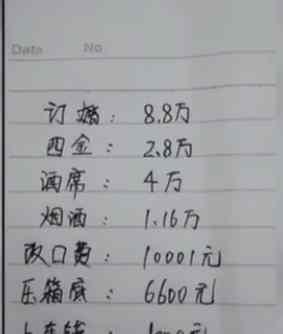 Data No
订婚：8.8万
四金：2.8万
酒席：4万
烟酒：1.16万
改口费：10001元
压箱底：6600元
上车钱：